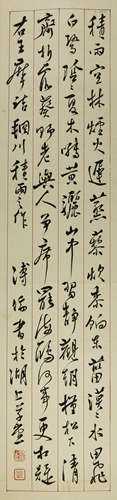 積雨空林煙火遲蒸藜炊黍餉東菑漠〻水田飛
白鷺陰〻夏木囀黃鸝山中習靜觀朝槿松下清
齋折露葵野老與人爭席罷海鷗何事更相疑
右王摩詰輞川積雨之作 溥儒書於湖上